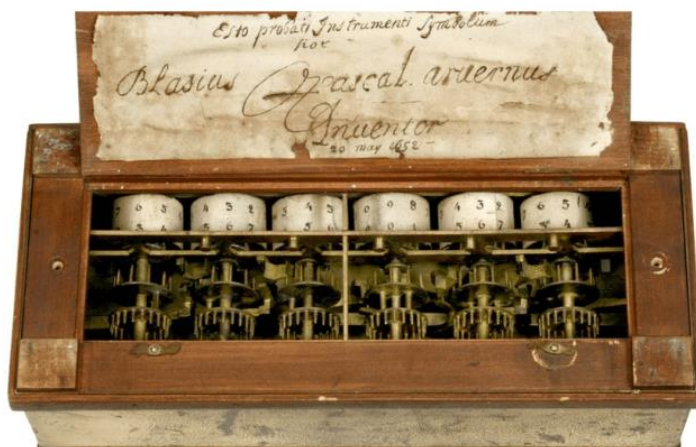 Esto probati Instrumenti Symbolum
hoc
Blasius Pascal. arvernus
Inventor
20 may 1652
7 6 5 4 3 2 5 4 3 0 0 9 8 5 4 3 2 7 6 5